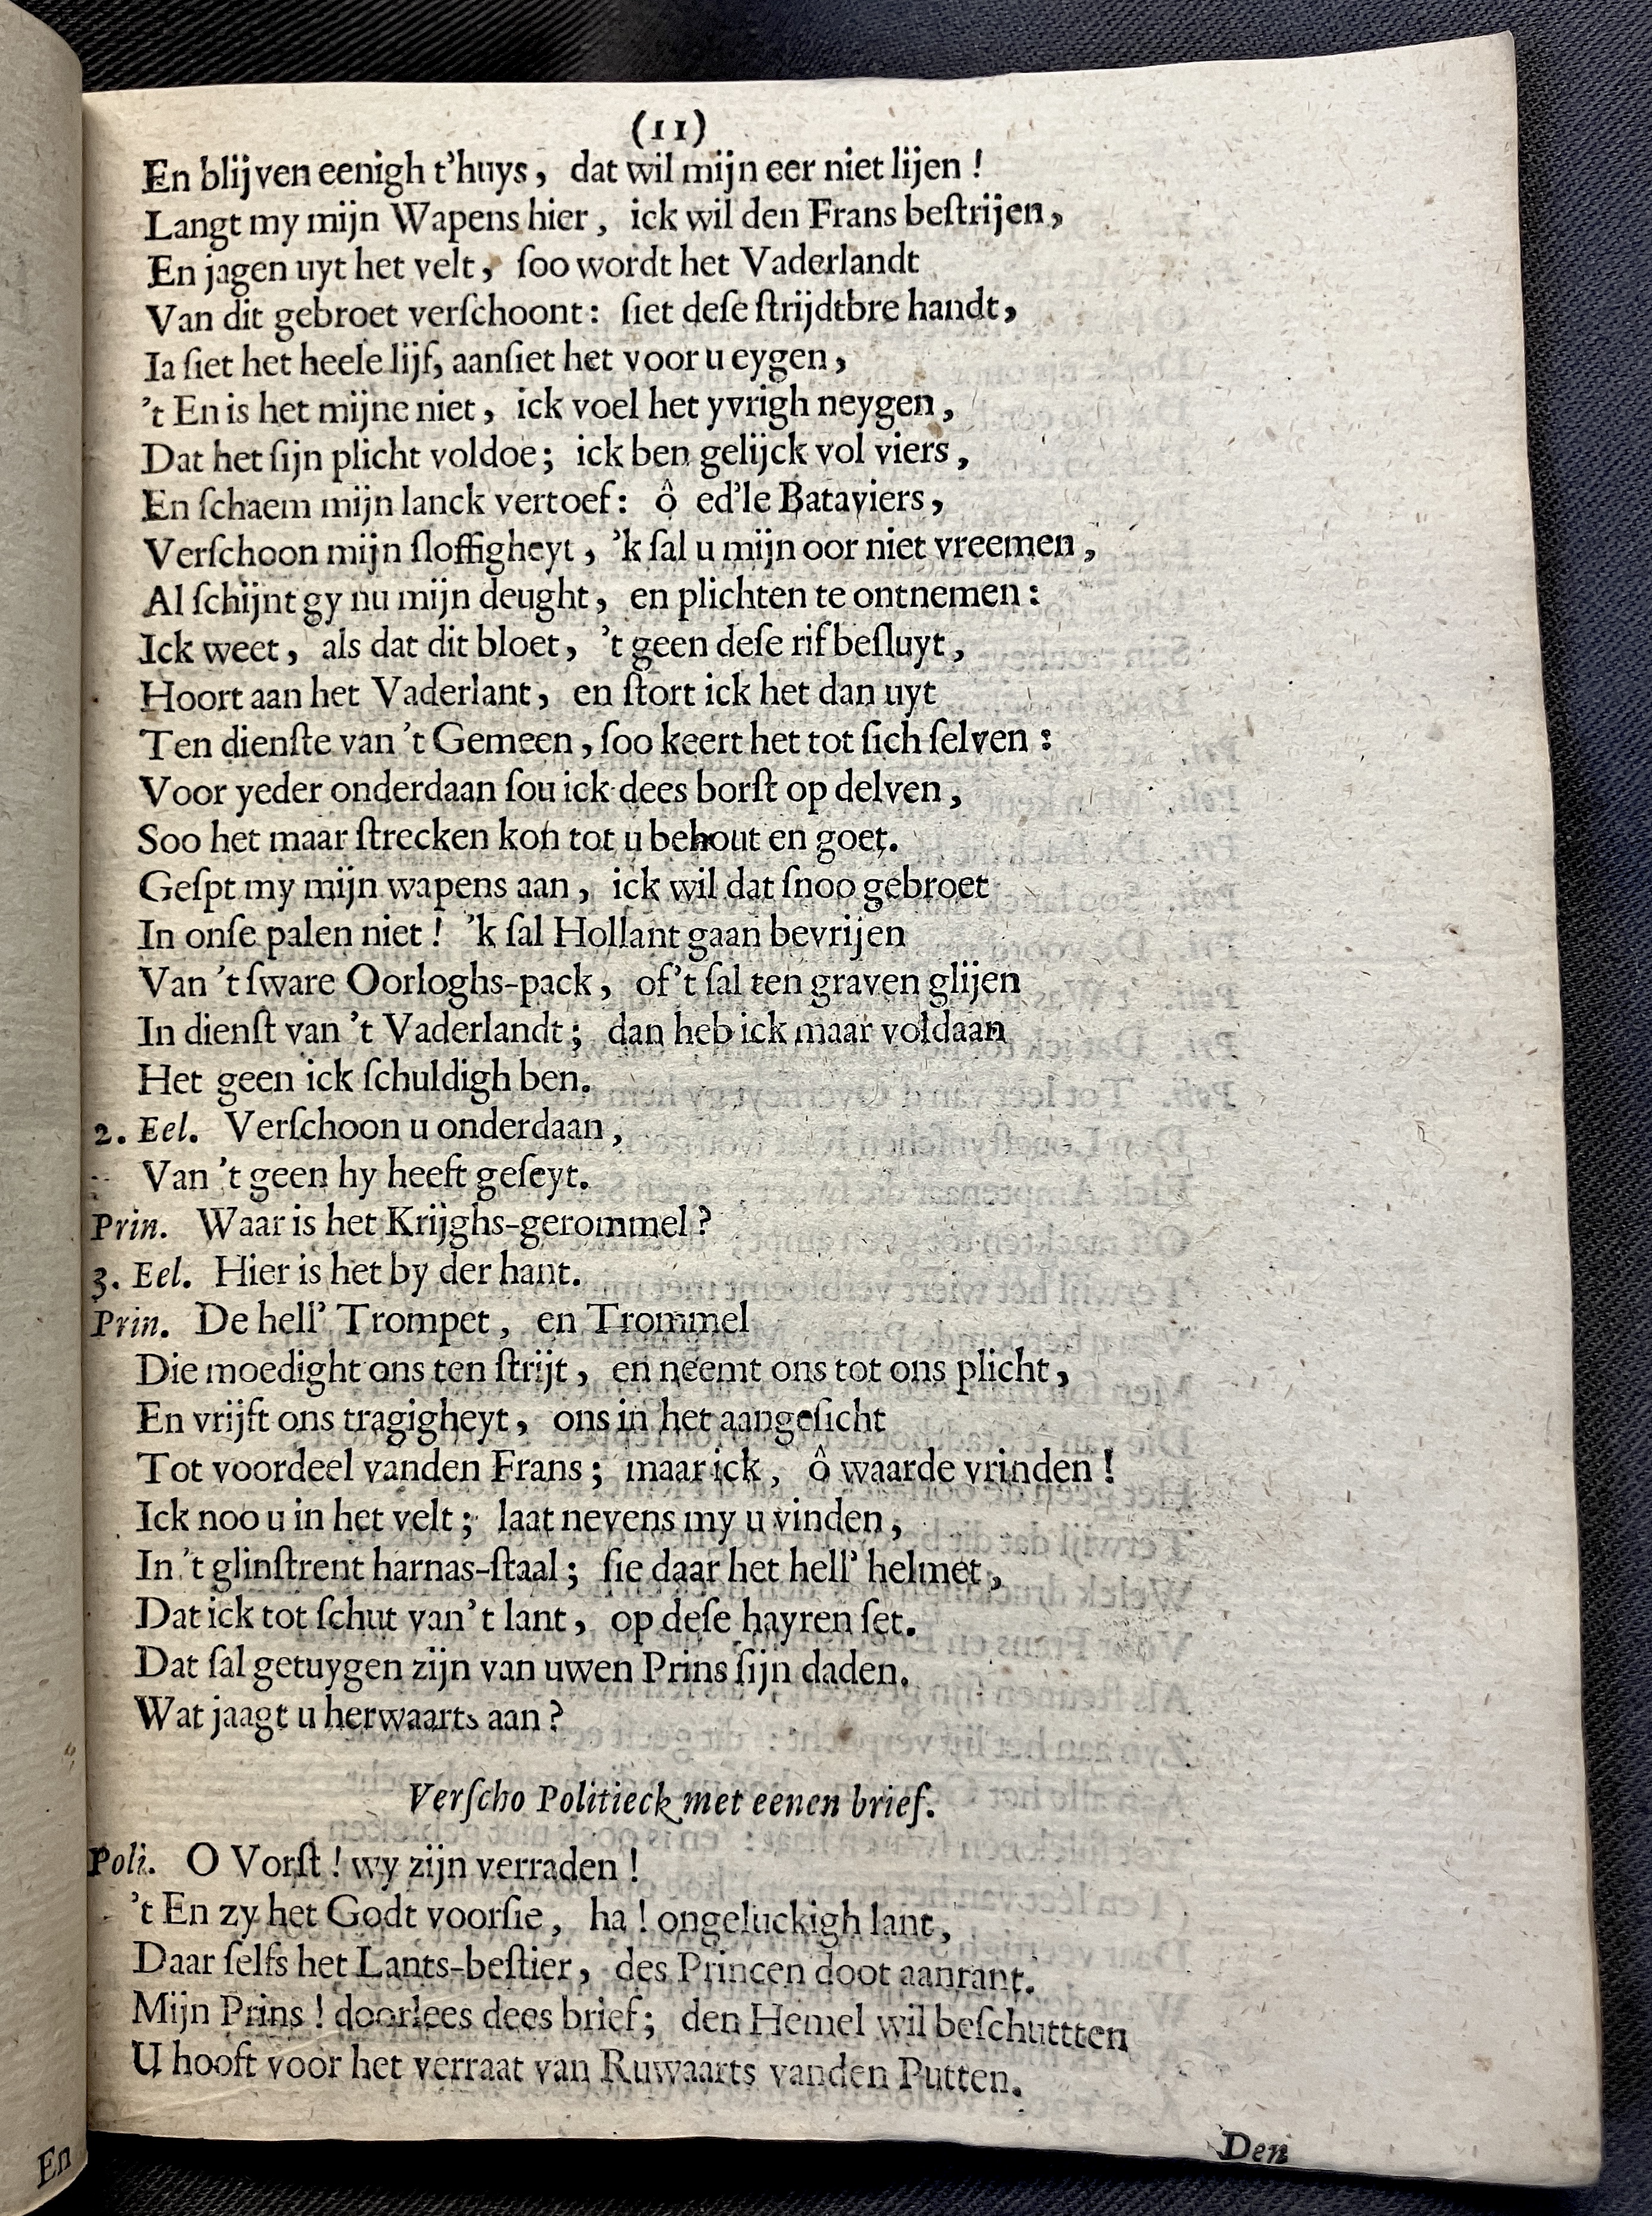 (11)
En blijven eenigh t'huys, dat wil mijn eer niet lijen!
Langt my mijn Wapens hier, ick wil den Frans beſtrijen,
En jagen uyt het velt, ſoo wordt het Vaderlandt
Van dit gebroet verſchoont: ſiet deſe ſtrijdtbre handt,
Ia ſiet het heele lijf, aanſiet het voor u eygen,
't En is het mijne niet, ick voel het yvrigh neygen,
Dat het ſijn plicht voldoe; ick ben gelijck vol viers,
En ſchaem mijn lanck vertoef: ô ed'le Bataviers,
Verſchoon mijn ſloffigheyt, 'k ſal u mijn oor niet vreemen,
Al ſchijnt gy nu mijn deught, en plichten te ontnemen:
Ick weet, als dat dit bloet, 't geen deſe rif beſluyt,
Hoort aan het Vaderlant, en ſtort ick het dan uyt
Ten dienſte van 't Gemeen, ſoo keert het tot ſich ſelven:
Voor yeder onderdaan ſou ick dees borſt op delven,
Soo het maar ſtrecken kon tot u behout en goet.
Geſpt my mijn wapens aan, ick wil dat ſnoo gebroet
In onſe palen niet! 'k ſal Hollant gaan bevrijen
Van 't ſware Oorloghs-pack, of 't ſal ten graven glijen
In dienſt van 't Vaderlandt; dan heb ick maar voldaan
Het geen ick ſchuldigh ben.
2. Eel. Verſchoon u onderdaan,
Van 't geen hy heeft geſeyt.
Prin. Waar is het Krijghs-gerommel?
3. Eel. Hier is het by der hant.
Prin. De hell' Trompet, en Trommel
Die moedight ons ten ſtrijt, en neemt ons tot ons plicht,
En vrijft ons tragigheyt, ons in het aangeſicht
Tot voordeel vanden Frans; maar ick, ô waarde vrinden!
Ick noo u in het velt; laat nevens my u vinden,
In 't glinſtrent harnas-ſtaal; ſie daar het hell' helmet,
Dat ick tot ſchut van 't lant, op deſe hayren ſet.
Dat ſal getuygen zijn van uwen Prins ſijn daden.
Wat jaagt u herwaarts aan?
Verſcho Politieck met eenen brief.
Poli. O Vorſt! wy zijn verraden!
't En zy het Godt voorſie, ha! ongeluckigh lant,
Daar ſelfs het Lants-beſtier, des Princen doot aanrant.
Mijn Prins! doorlees dees brief; den Hemel wil beſchuttten
U hooft voor het verraat van Ruwaarts vanden Putten.
Den
En